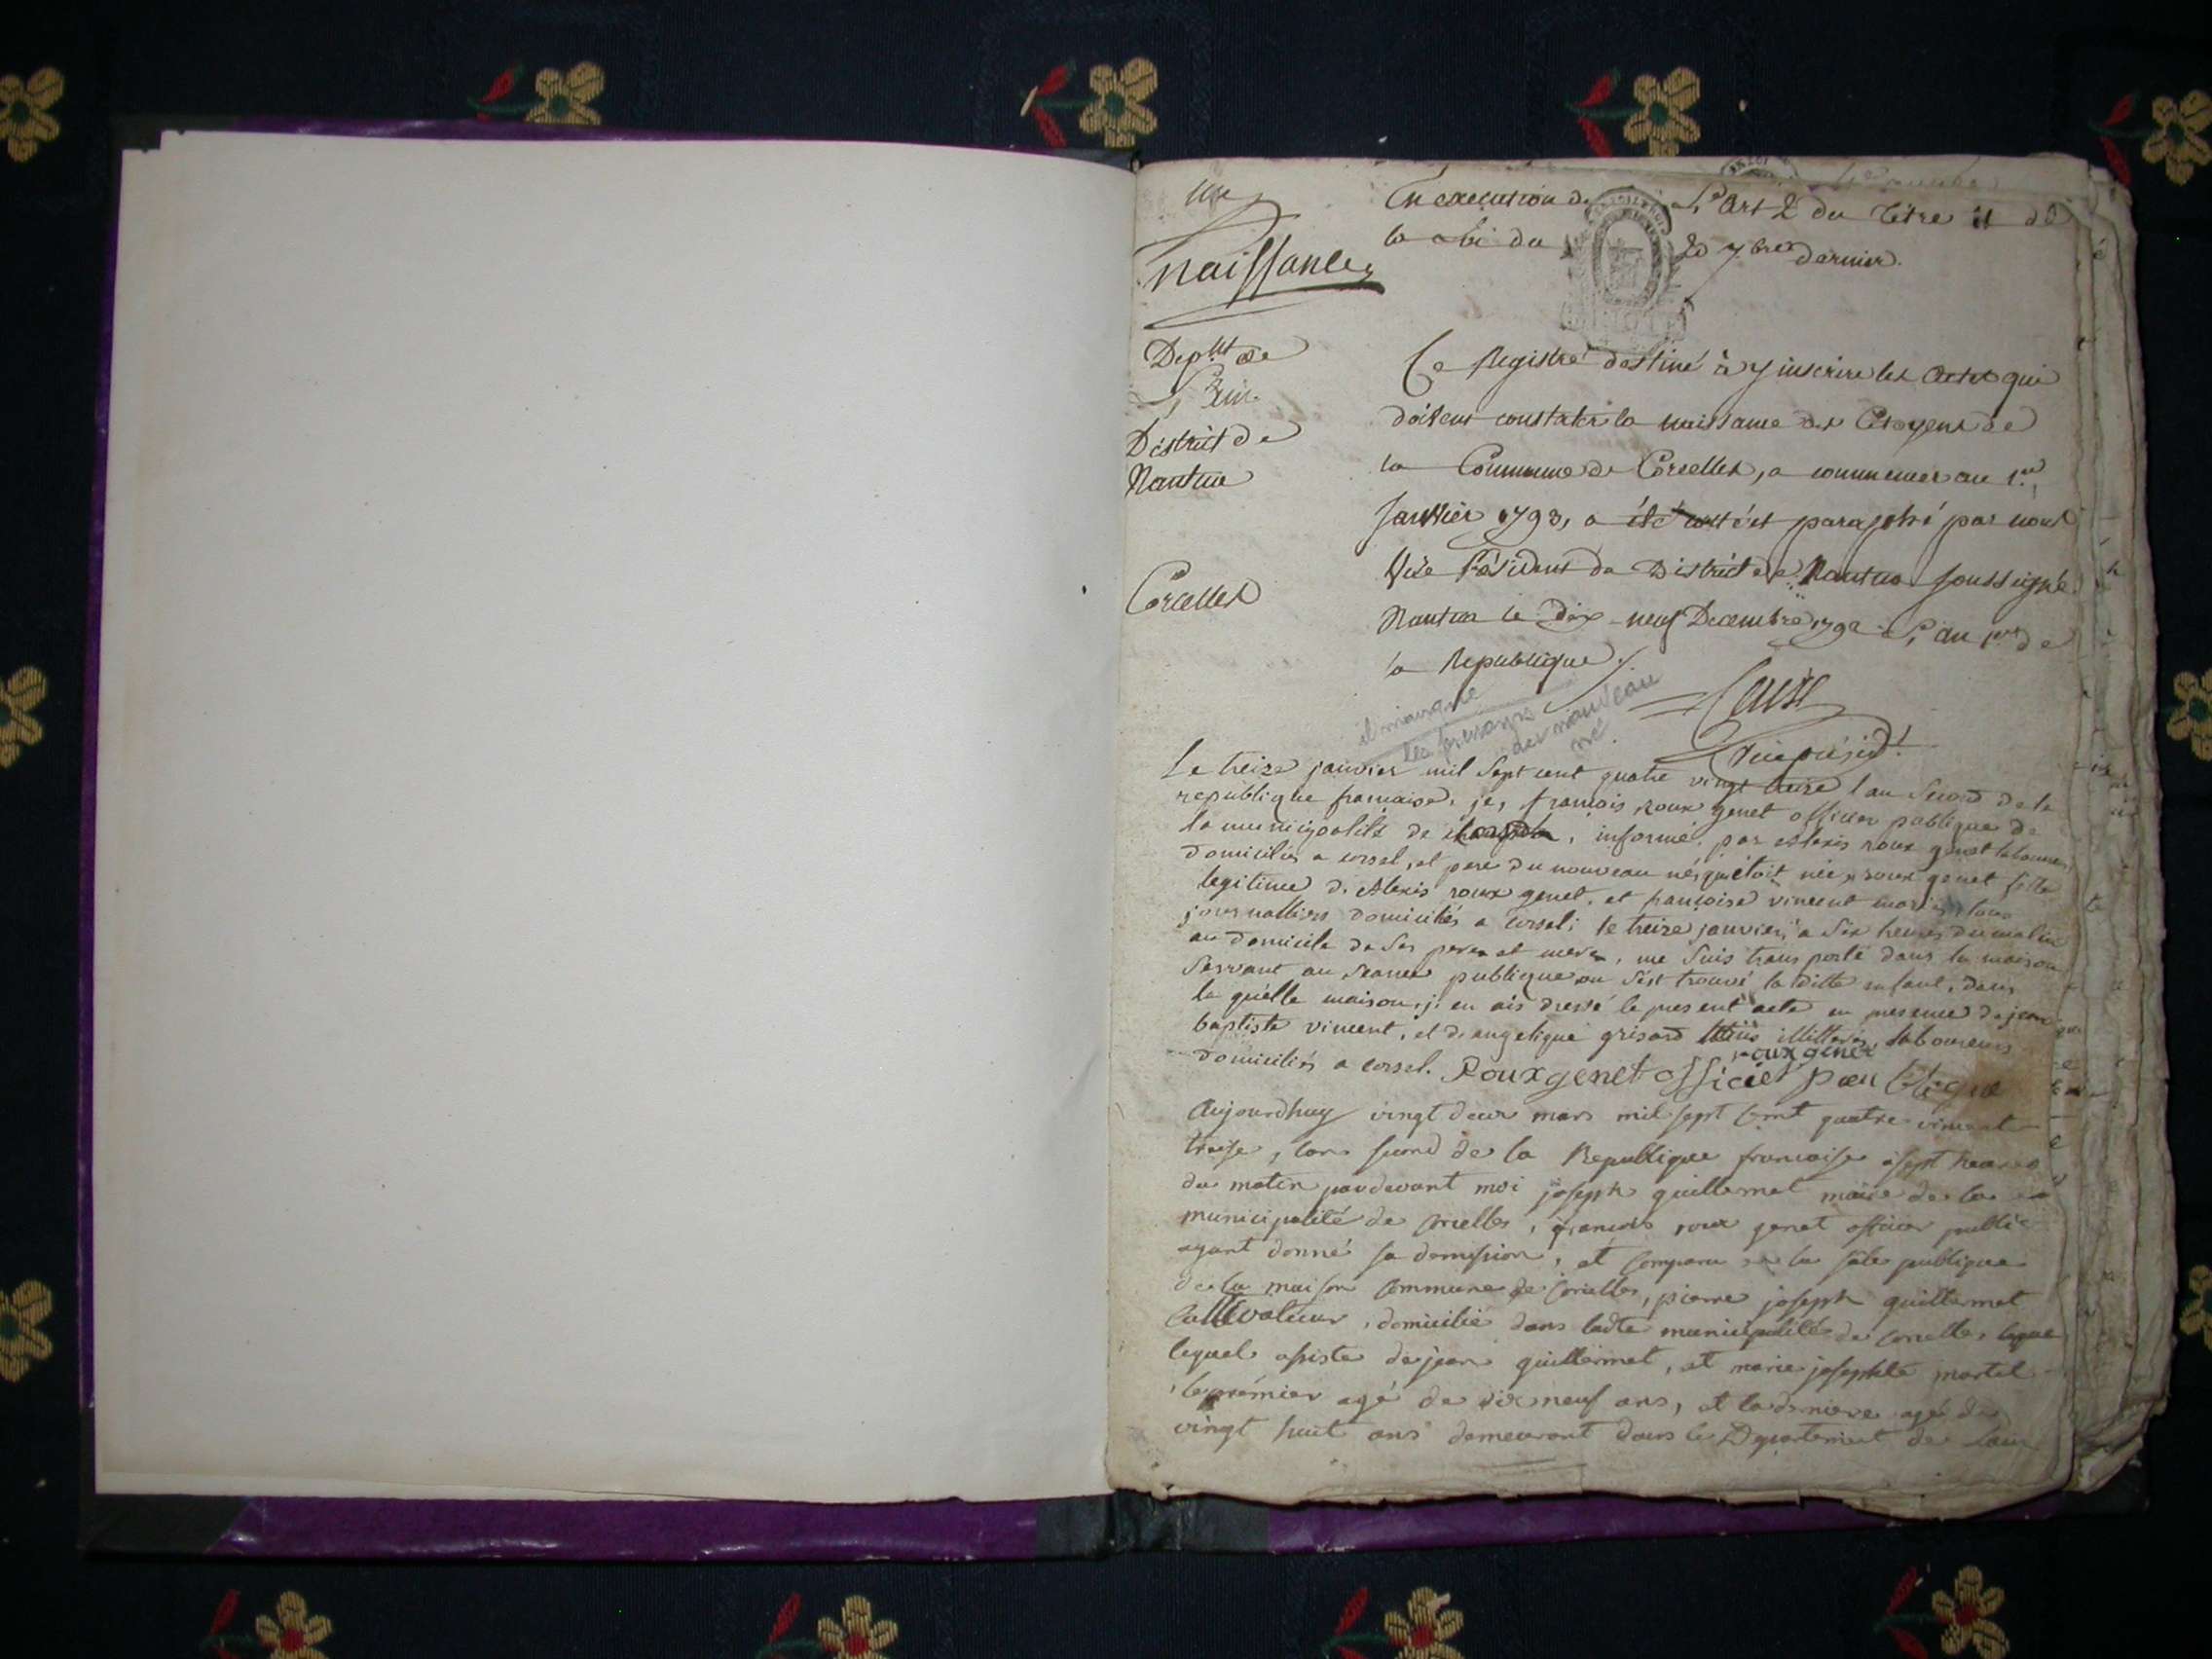 un
Naissances
Dept de
L'Ain
District de
Nantua
Corcelles
En execution de L'art 2 du titre 2 de
la Loi du 20 7bre dernier.
Ce Registre destiné à y inscrire les actes qui
doivent constater la naissance des Citoyens de
la Commune de Corcelles, a commencer au 1er
Janvier 1793, a été cotté et paraphé par nous
Vice Président du District de Nantua soussigné
Nantua le dix-neuf Decembre 1792 L'an 1er de
la Republique
vice présidt
il manque
les prenoms
des nouveau
né
Le treize janvier mil sept cent quatre vingt treize l'an second de la
republique francaise, je, francois roux genet officier publique de
la municipalité de, informé par alexis roux genet laboureur
domicilié a corsel, et pere du nouveau né, qu'étoit née roux genet fille
legitime de Alexis roux genet, et francoise vincent mariés, tous
journalliers domiciliés a corsel, le treize janvier, a six heures du matin
au domicile de ses peres et meres, me suis transporté dans la maison
servant au seance publique ou s'est trouvé la ditte enfant, dans
la quélle maison, j'en ais dressé le present acte en presence de jean
baptiste vincent, et d'angelique grisard illitterés, laboureurs
domiciliés a corsel. Roux genet officier publique
roux genet
Aujourdhuy vingt deux mars mil sept cent quatre vincent
treise, lans second de la Republique francaise a sept heures
du matin par devant moi joseph guillermet maire de la
municipalité de corcelles, francois roux genet officier public
ayant donné sa demission, et comparu en la sale publique
de la maison commune de corcelles, pierre joseph guillermet
cultivateur, domicilié dans ladte municipalité de corcelles
lequel assisté de jean guillermet, et marie josephte martel
le premier agé de dix neuf ans, et la derniere agé de
vingt huit ans demeurant dans le Departement de Lain